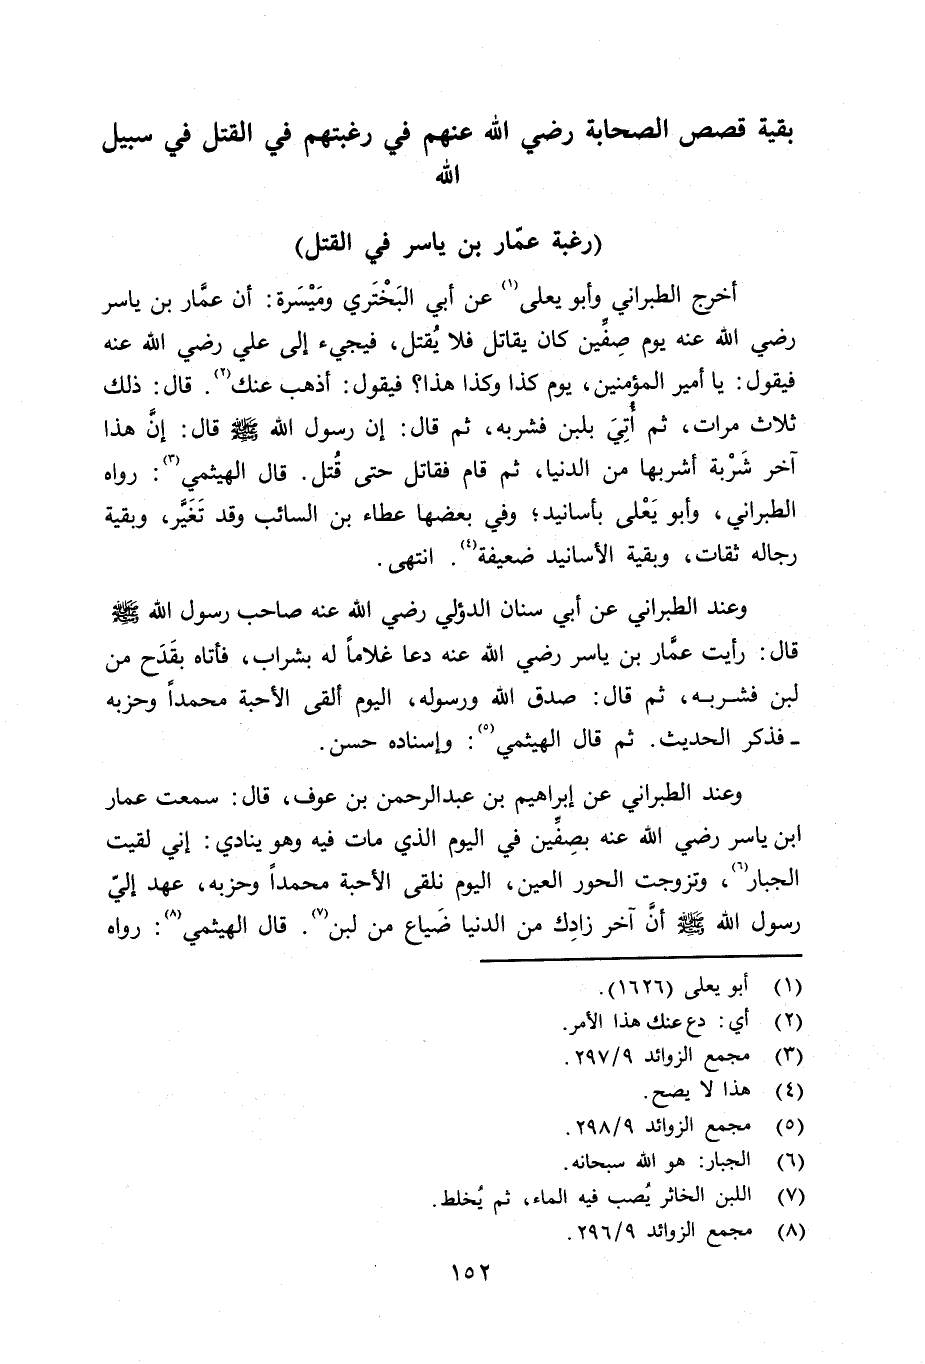 بقية قصص الصحابة رضي الله عنهم في رغبتهم في القتل في سبيل
الله
(رغبة عمّار بن ياسر في القتل)
أخرج الطبراني وأبو يعلى(١) عن أبي البَخْتَري ومَيْسَرة: أن عمَّار بن ياسر
رضي الله عنه يوم صِفِّين كان يقاتل فلا يُقتل، فيجيء إلى علي رضي الله عنه
فيقول: يا أمير المؤمنين، يوم كذا وكذا هذا؟ فيقول: أذهب عنك(٢). قال: ذلك
ثلاث مرات، ثم أُتِيَ بلبن فشربه، ثم قال: إن رسول الله ﷺ قال: إنَّ هذا
آخر شَرْبة أشربها من الدنيا، ثم قام فقاتل حتى قُتل. قال الهيثمي(٣): رواه
الطبراني، وأبو يَعْلى بأسانيد؛ وفي بعضها عطاء بن السائب وقد تَغَيَّر، وبقية
رجاله ثقات، وبقية الأسانيد ضعيفة(٤). انتهى.
وعند الطبراني عن أبي سنان الدؤلي رضي الله عنه صاحب رسول الله ﷺ
قال: رأيت عمَّار بن ياسر رضي الله عنه دعا غلاماً له بشراب، فأتاه بقَدَح من
لبن فشربه، ثم قال: صدق الله ورسوله، اليوم ألقى الأحبة محمداً وحزبه
ـ فذكر الحديث. ثم قال الهيثمي(٥): وإسناده حسن.
وعند الطبراني عن إبراهيم بن عبدالرحمن بن عوف، قال: سمعت عمار
ابن ياسر رضي الله عنه بصِفِّين في اليوم الذي مات فيه وهو ينادي: إني لقيت
الجبار(٦)، وتزوجت الحور العين، اليوم نلقى الأحبة محمداً وحزبه، عهد إليّ
رسول الله ﷺ أنَّ آخر زادِك من الدنيا ضَياع من لبن(٧). قال الهيثمي(٨): رواه
(١) أبو يعلى (١٦٢٦).
(٢) أي: دع عنك هذا الأمر.
(٣) مجمع الزوائد ٢٩٧/٩.
(٤) هذا لا يصح.
(٥) مجمع الزوائد ٢٩٨/٩.
(٦) الجبار: هو الله سبحانه.
(٧) اللبن الخاثر يُصب فيه الماء، ثم يُخلط.
(٨) مجمع الزوائد ٢٩٦/٩.
١٥٢